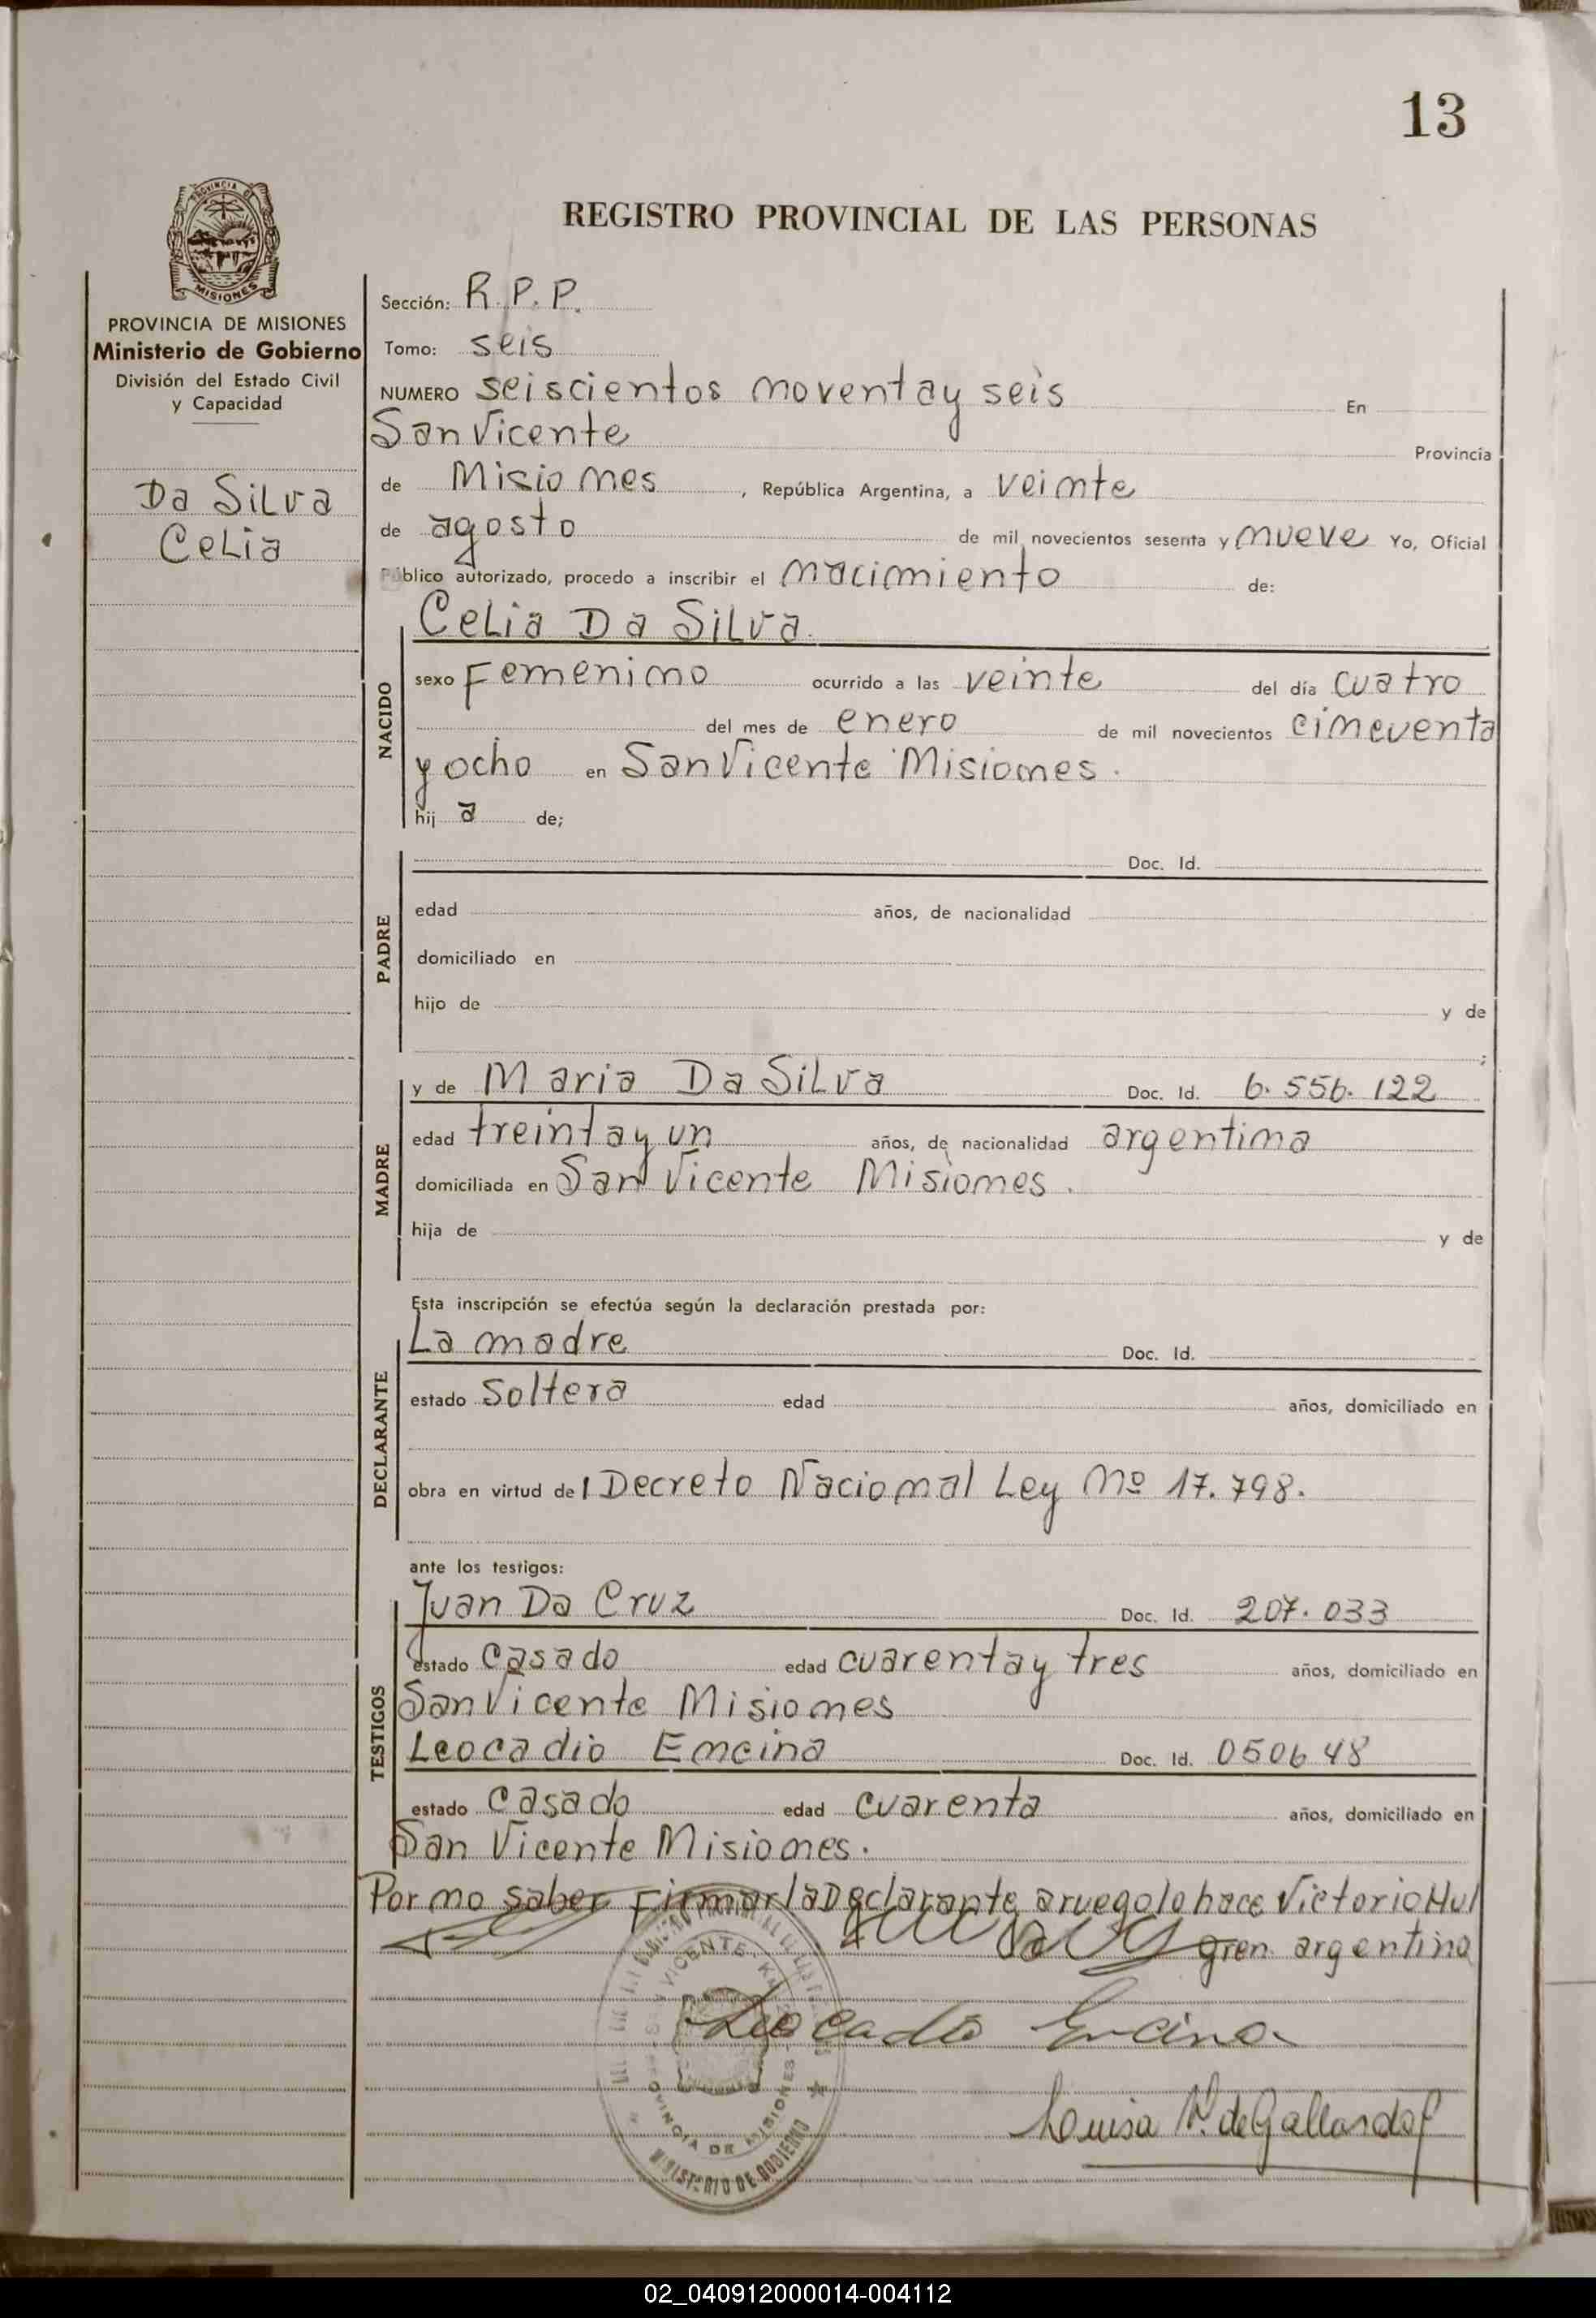 13
PROVINCIA DE
MISIONES
REGISTRO PROVINCIAL DE LAS PERSONAS
PROVINCIA DE MISIONES
Ministerio de Gobierno
División del Estado Civil
y Capacidad
Da Silva
Celia
Sección: R.P.P.
Tomo: seis
NUMERO seiscientos noventa y seis En
San Vicente Provincia
de Misiones, República Argentina, a veinte
de agosto de mil novecientos sesenta y nueve Yo, Oficial
Público autorizado, procedo a inscribir el nacimiento de:
Celia Da Silva
NACIDO
sexo Femenino ocurrido a las veinte del día cuatro
del mes de enero de mil novecientos cincuenta
y ocho en San Vicente Misiones.
hij a de;
PADRE
Doc. Id.
edad años, de nacionalidad
domiciliado en
hijo de y de
;
MADRE
y de Maria Da Silva Doc. Id. 6.556.122
edad treinta y un años, de nacionalidad argentina
domiciliada en San Vicente Misiones.
hija de y de
Esta inscripción se efectúa según la declaración prestada por:
DECLARANTE
La madre Doc. Id.
estado soltera edad años, domiciliado en
obra en virtud de l Decreto Nacional Ley Nº 17.798.
ante los testigos:
TESTIGOS
Juan Da Cruz Doc. Id. 207.033
estado casado edad cuarenta y tres años, domiciliado en
San Vicente Misiones
Leocadio Encina Doc. Id. 050648
estado casado edad cuarenta años, domiciliado en
San Vicente Misiones.
Por no saber Firmar la Declarante, a ruego lo hace Victorio Hul
gren argentino
Leocadio Encina
Louisa N. de Gallardo
VICENTE
PROVINCIA DE MISIONES
MINISTERIO DE GOBIERNO
02_040912000014-004112